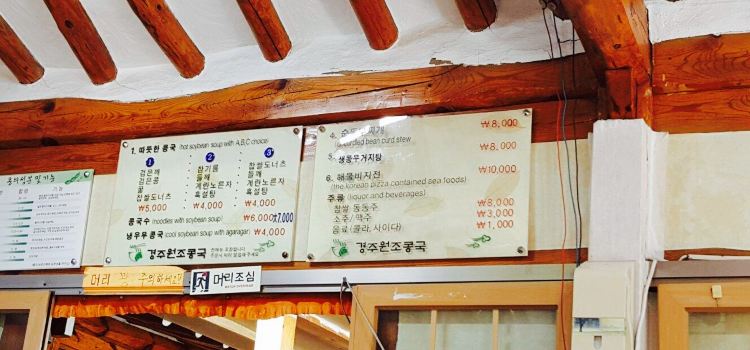 콩의성분및기능
1. 따뜻한 콩국 (hot soybean soup with A,B,C choice)
1 2 3
검은깨 참기름 찹쌀도너츠
검은콩 들깨 들깨
꿀 계란노른자 계란노른자
찹쌀도너츠 흑설탕 흑설탕
₩5,000 ₩4,000 ₩4,000
콩국수 (noodles with soybean soup) ₩6,000 大7,000
냉우무콩국 (cool soybean soup with agaragar) ₩4,000
경주원조콩국
4. 순두부찌개 ₩8,000
(uncurded bean curd stew
5. 생콩우거지탕 ₩8,000
6. 해물비지전 ₩10,000
(the korean pizza contained sea foods)
주류 (liquor and beverages)
찹쌀 동동주 ₩8,000
소주/맥주 ₩3,000
음료(콜라, 사이다) ₩1,000
경주원조콩국
머리 꽝 주의하세요
머리조심
WATCH OVERHEAD